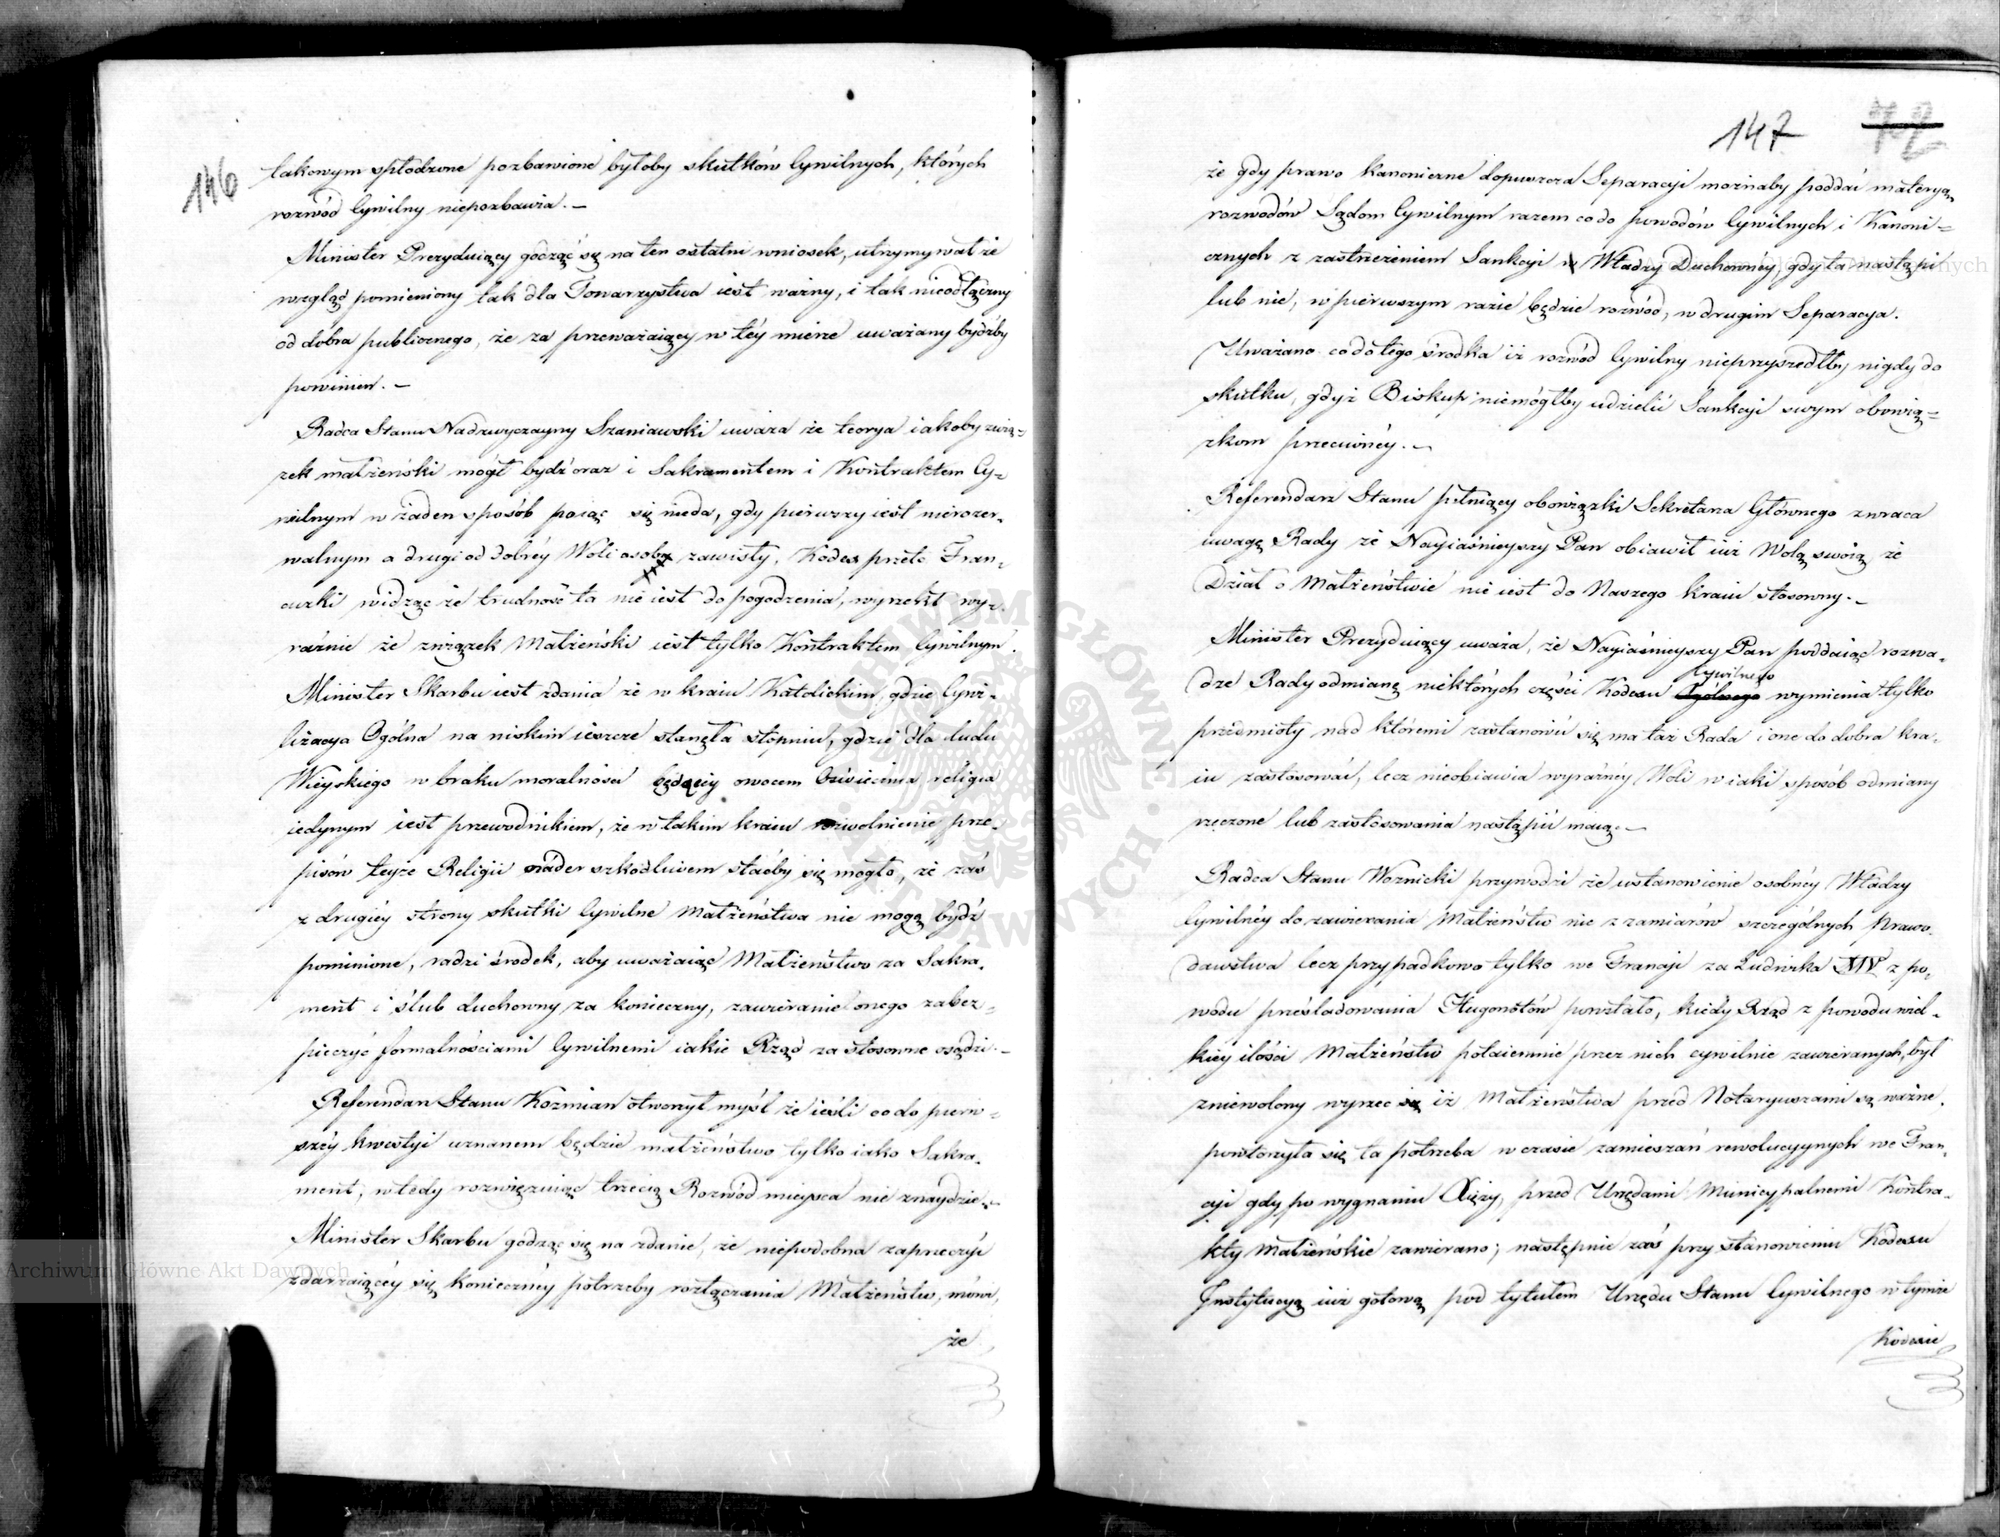 146
takowym spłodzone pozbawione byłoby skutków Cywilnych, których
rozwód Cywilny niepozbawia. —
Minister Prezyduiący godząc się na ten ostatni wniosek, utrzymywał że
wzgląd pomieniony tak dla Towarzystwa iest ważny, i tak nieodłączny
od dobra publicznego, że za przeważaiący w téy mierze uważany bydźby
powinien. —
Radca Stanu Nadzwyczayny Szaniawski uważa że teorya iakoby zwią-
zek małżeński mógł bydź oraz i Sakramentem i Kontraktem Cy-
wilnym w żaden sposób poiąc się nieda, gdy pierwszy iest nierozer-
walnym a drugi od dobréy Woli osoby zawisły, Kodex przeto Fran-
cuzki widząc że trudność ta nie iest do pogodzenia, wyrzekł wy-
raźnie że związek Małżeński iest tylko Kontraktem Cywilnym.
Minister Skarbu iest zdania że w kraiu Katolickim, gdzie Cywi-
lizacya Ogólna na niskim ieszcze stanęła stopniu, gdzie dla ludu
Wieyskiego w braku moralności będącéy owocem Oświecenia religia
iedynym iest przewodnikiem, że w takim kraiu rozwolnienie prze-
pisów teyże Religii nader szkodliwem staćby się mogło, że zaś
z drugiéy strony skutki Cywilne Małżeństwa nie mogą bydź
pominione, radzi środek, aby uważaiąc Małżeństwo za Sakra-
ment i ślub duchowny za konieczny, zawieranie onego zabez-
pieczyć formalnościami Cywilnemi iakie Rząd za stosowne osądzi. —
Referendarz Stanu Kozmian otworzył myśl że ieśli co do pierw-
széy kwestyi uznanem będzie małżeństwo tylko iako Sakra-
ment, wtedy rozwięzuiąc trzecią Rozwód mieysca nie znaydzie. —
Minister Skarbu godząc się na zdanie, że niepodobna zaprzeczyć
zdarzaiącéy się koniecznéy potrzeby rozłączania Małżeństw, mówi,
że
147
72
że gdy prawo kanoniczne dopuszcza Separacyi możnaby poddać materyą
rozwodów Sądom Cywilnym razem co do powodów Cywilnych i Kanoni-
cznych z zastrzeżeniem Sankcyi Władzy Duchownéy, gdy ta nastąpi
lub nie, w pierwszym razie będzie rozwód, w drugim Separacya.
Uważano co do tego środka iż rozwód Cywilny nieprzyszedłby nigdy do
skutku, gdyż Biskup niemógłby udzielić Sankcyi swym obowią-
zkom przeciwnéy. —
Referendarz Stanu pełniący obowiązki Sekretarza Głównego zwraca
uwagę Rady że Nayiaśnieyszy Pan obiawił iuż Wolą swoią że
Dział o Małżeństwie nie iest do Naszego kraiu stosowny. —
Minister Prezyduiący uważa, że Nayiaśnieyszy Pan poddaiąc rozwa-
dze Rady odmianę niektórych części Kodexu Cywilnego wymienia tylko
przedmioty nad któremi zastanowić się ma taż Rada i one do dobra kra-
iu zastosować, lecz nieobiawia wyraźnéy Woli w iaki sposób odmiany
rzeczone lub zastosowania nastąpić maią. —
Radca Stanu Woznicki przywodzi że ustanowienie osobnéy Władzy
Cywilnéy do zawierania Małżeństw nie z zamiarów szczególnych Prawo-
dawstwa lecz przypadkowo tylko we Francyi za Ludwika XIV z po-
wodu prześladowania Hugonotów powstało, kiedy Rząd z powodu wiel-
kiéy ilości Małżeństw potaiemnie przez nich cywilnie zawieranych, był
zniewolony wyrzec iż Małżeństwa przed Notaryuszami są ważne.
powtorzyła się ta potrzeba w czasie zamieszań rewolucyynych we Fran-
cyi gdy po wygnaniu Xięży, przed Urzędami Municypalnemi Kontra-
kty małżeńskie zawierano; następnie zaś przy stanowieniu Kodexu
Instytucyą iuż gotową pod tytułem Urzędu Stanu Cywilnego w tymże
Kodexie